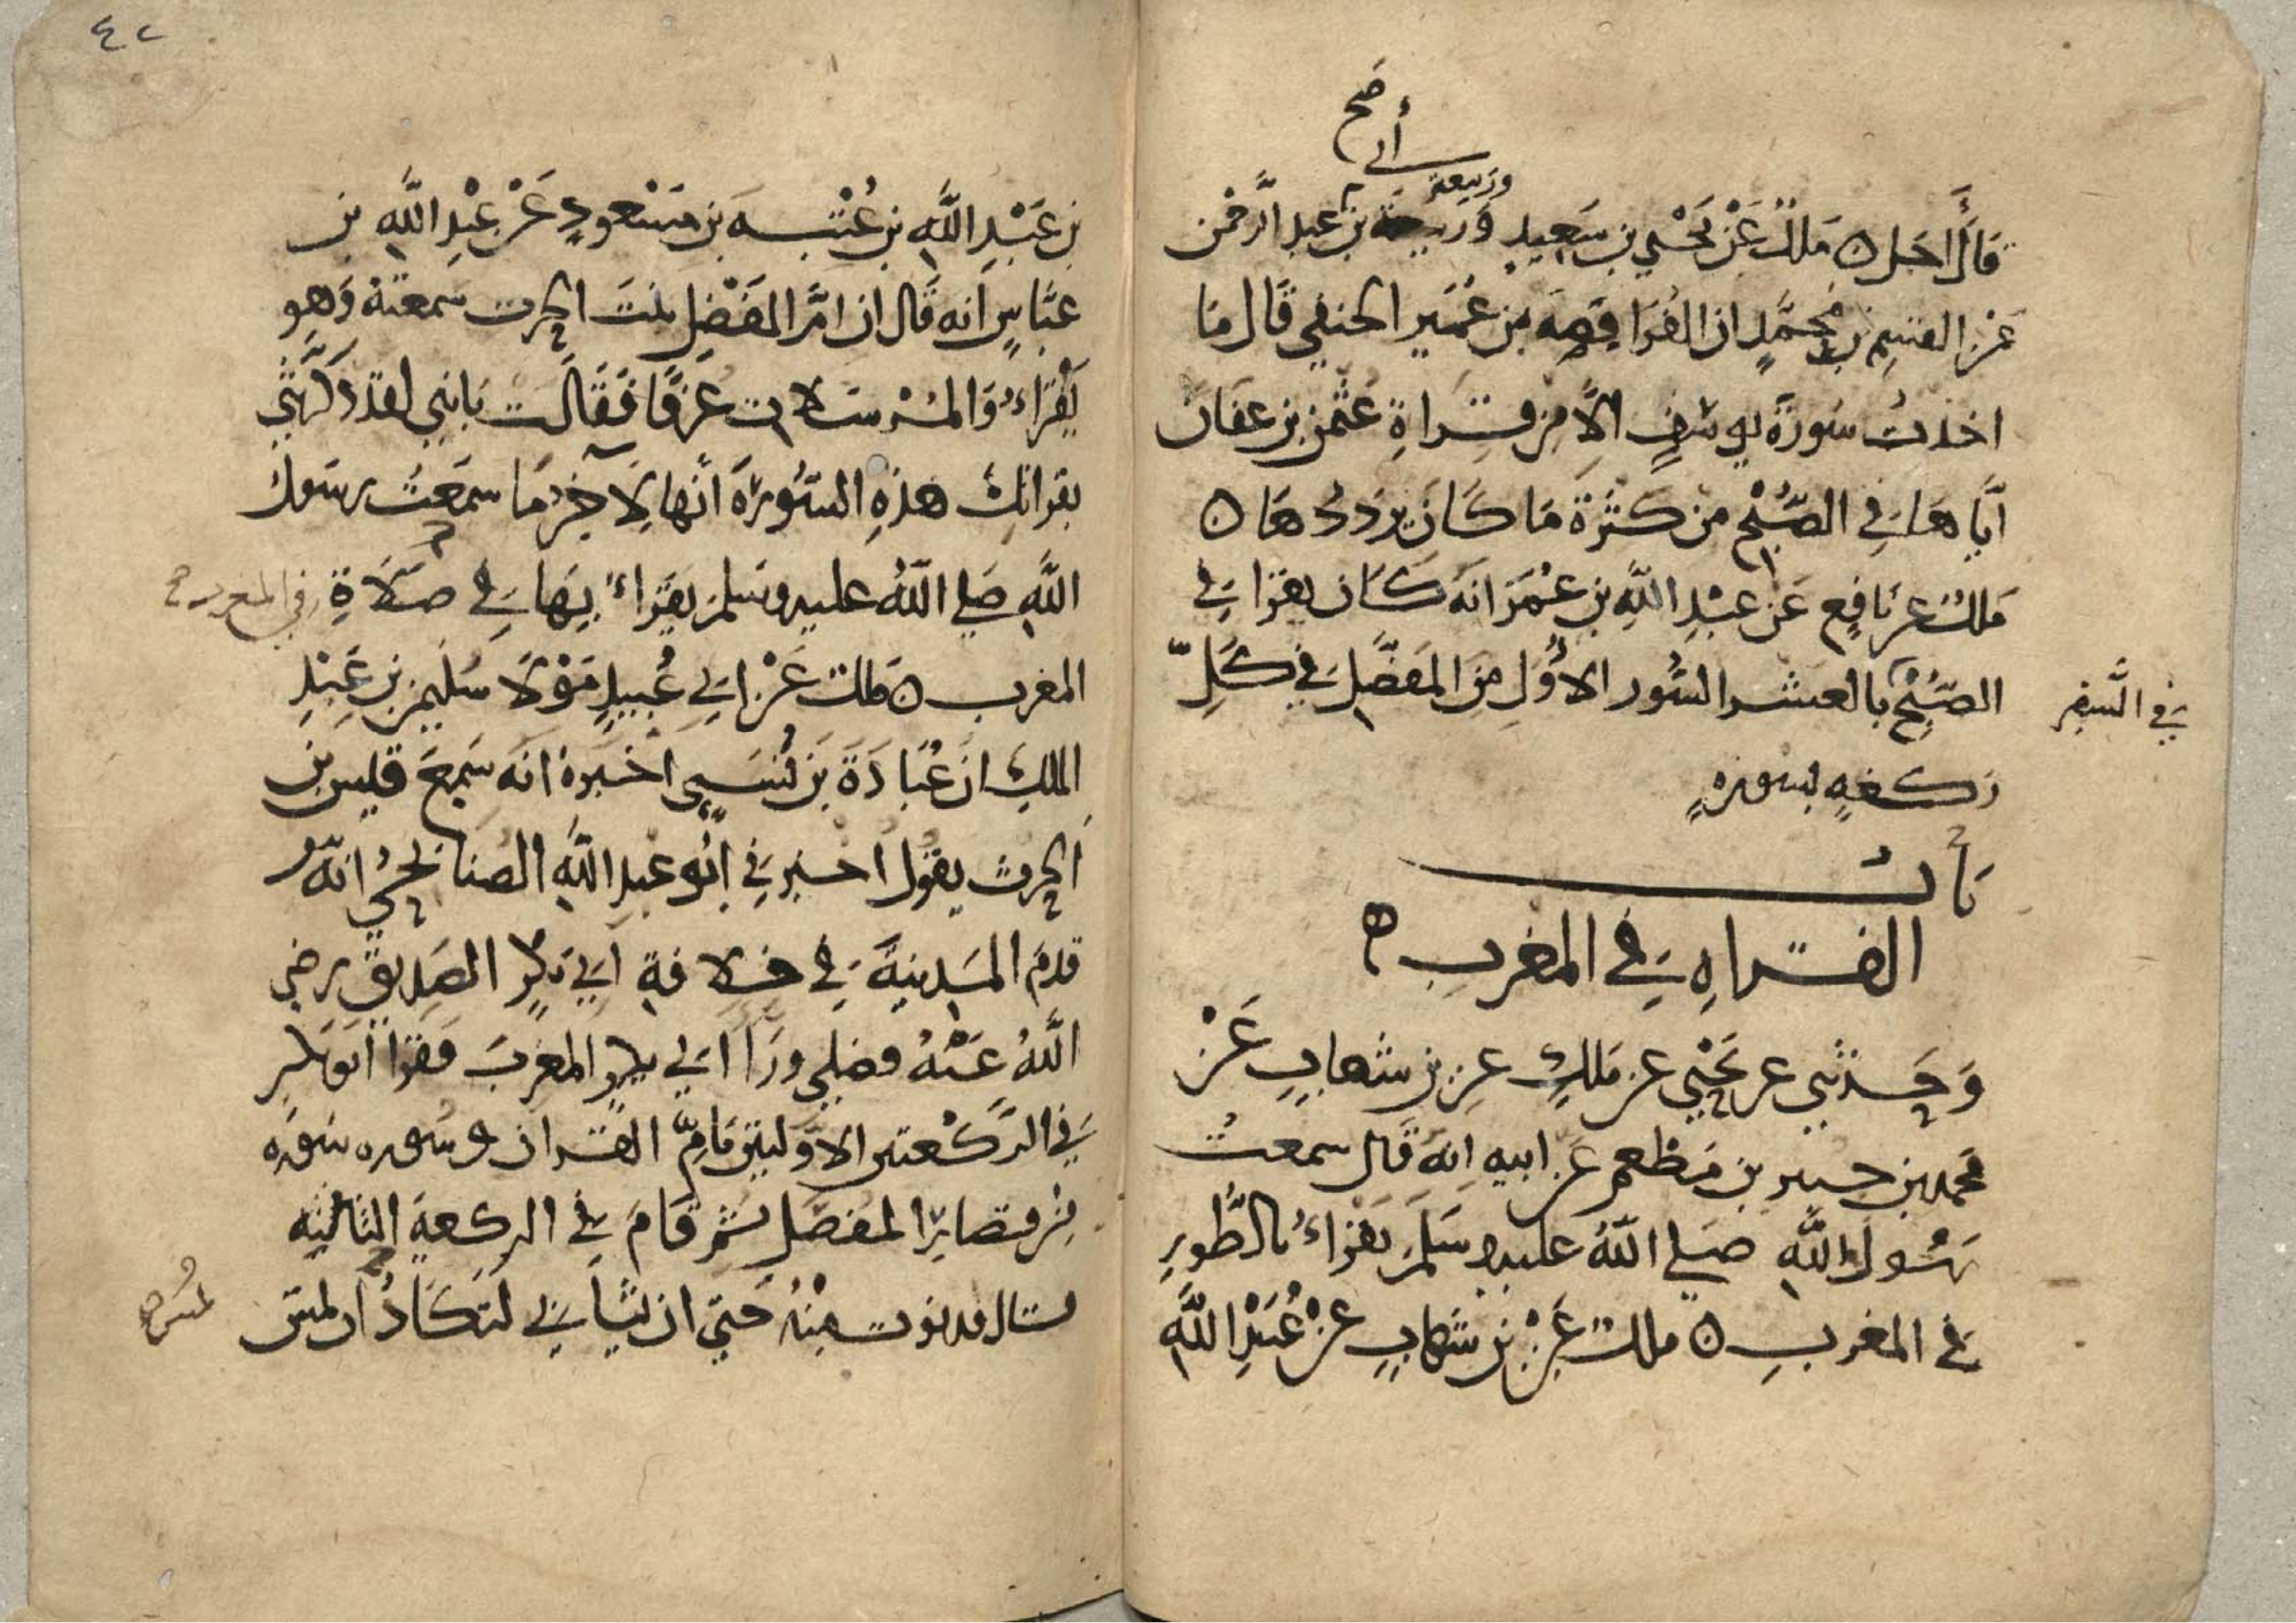 صح
أبي
وربيعة
قال أجل ه ملك عن يحيي بن سعيد وربيعة بن عبد الرحمن
عن القسم بن محمد ان الفرافصه بن عمير الحنفي قال ما
اخذت سورة يوسف الا من قراة عثمن بن عفان
اياها في الصبح من كثرة ما كان يرددها ه
ملك عن نافع عن عبد الله بن عمر انه كان يقرا في
الصبح بالعشر السور الاول من المفصل في كل
في السفر
ركعه بسوره
باب
القراه في المغرب ه
وحدثني عن يحيي عن ملك عن بن شهاب عن
محمد بن جبير بن مطعم عن ابيه انه قال سمعت
رسول الله صلي الله عليه وسلم يقراء بالطور
في المغرب ه ملك عن بن شهاب عن عبيد الله
٤٢
بن عبد الله بن عتبه بن مسعود عن عبد الله بن
عباس انه قال ان ام الفضل بنت الحرث سمعته وهو
يقراء والمرسلات عرفا فقالت يا بني لقد ذكرتني
بقراتك هذه السوره انها لاخر ما سمعت رسول
الله صلي الله عليه وسلم يقراء بها في صلاة
في المغرب
المغرب ه ملك عن ابي عبيد مولا سليمن بن عبد
الملك ان عبادة بن نسي اخبره انه سمع قيس بن
الحرث يقول اخبرني ابو عبد الله الصنابحي انه
قدم المدينة في خلافة ابي بكر الصديق رضي
الله عنه فصلي ورا ابي بكر المغرب فقرا ابو بكر
في الركعتين الاوليتين بام القران وسوره سوره
من قصار المفصل ثم قام في الركعة الثالثه
قال فدنوت منه حتي ان ثيابي لتكاد ان تمس